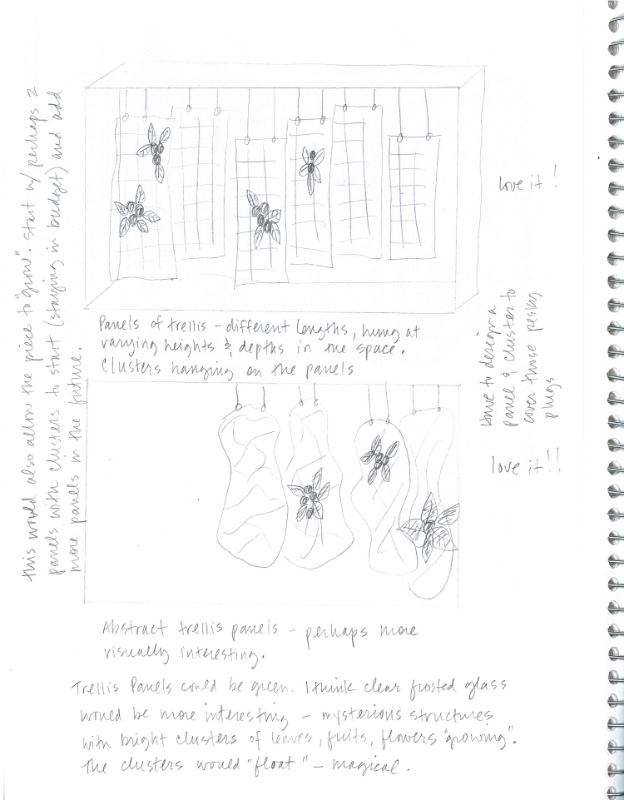 this would also allow the piece to "grow". Start w/ perhaps 2
panels with clusters to start (staying in budget) and add
more panels in the future.
love it!
Panels of trellis - different lengths, hung at
varying heights & depths in the space.
Clusters hanging on the panels
have to design a
panel & cluster to
cover those pesky
plugs
love it!!
Abstract trellis panels - perhaps more
visually interesting.
Trellis Panels could be green. I think clear frosted glass
would be more interesting - mysterious structures
with bright clusters of leaves, fruits, flowers "growing".
The clusters would "float" - magical.